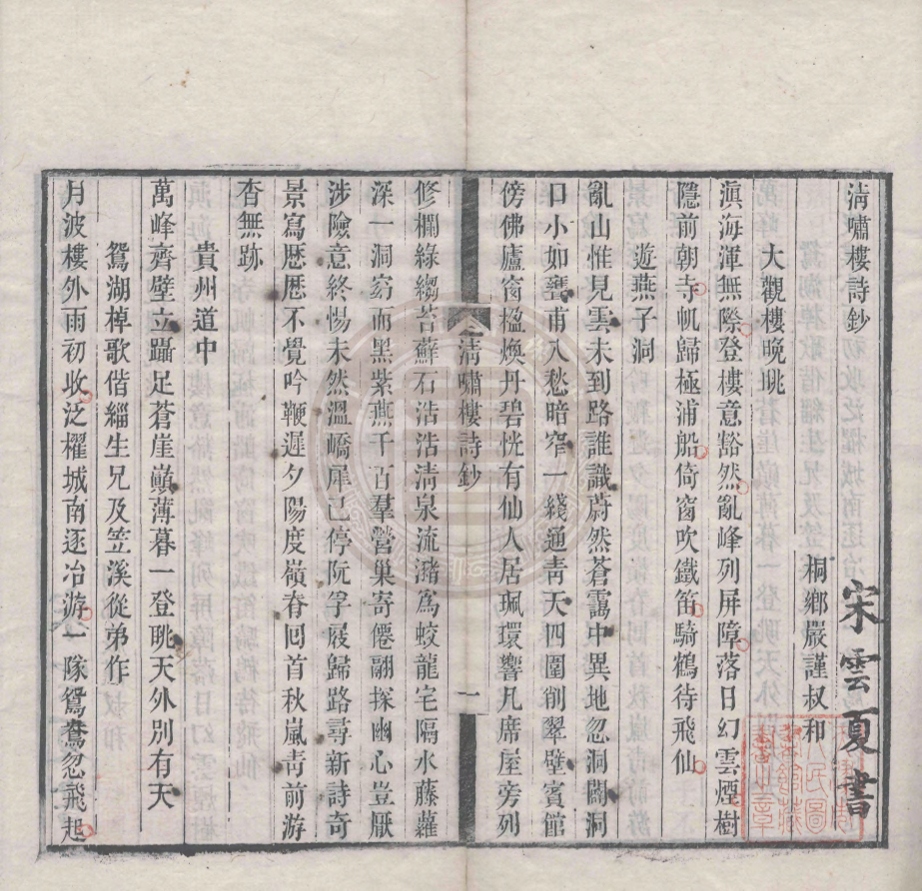 清嘯樓詩鈔
桐鄉嚴謹叔和
宋雲夏書
大觀樓晚眺
滇海渾無際登樓意豁然亂峰列屏障落日幻雲煙樹
隱前朝寺帆歸極浦船倚窗吹鐵笛騎鶴待飛仙
遊燕子洞
亂山惟見雲未到路誰識蔚然蒼靄中異地忽洞闢洞
口小如甕甫入愁暗窄一綫通青天四圍削翠壁賓館
傍佛廬窗楹煥丹碧恍有仙人居珮環響几席屋旁列
清嘯樓詩鈔
一
修欄綠縐苔蘚石㓉㓉清泉流潴爲蛟龍宅隔水藤蘿
深一洞窈而黑紫燕千百羣營巢寄僊翮探幽心豈厭
涉險意終惕未然溫嶠犀已停阮孚屐歸路尋新詩奇
景寫歷歷不覺吟鞭遲夕陽度嶺脊回首秋嵐青前游
杳無跡
貴州道中
萬峰齊壁立躡足蒼崖巔薄暮一登眺天外別有天
鴛湖棹歌偕緇生兄及笠溪從弟作
月波樓外雨初收泛櫂城南逐冶游一隊鴛鴦忽飛起